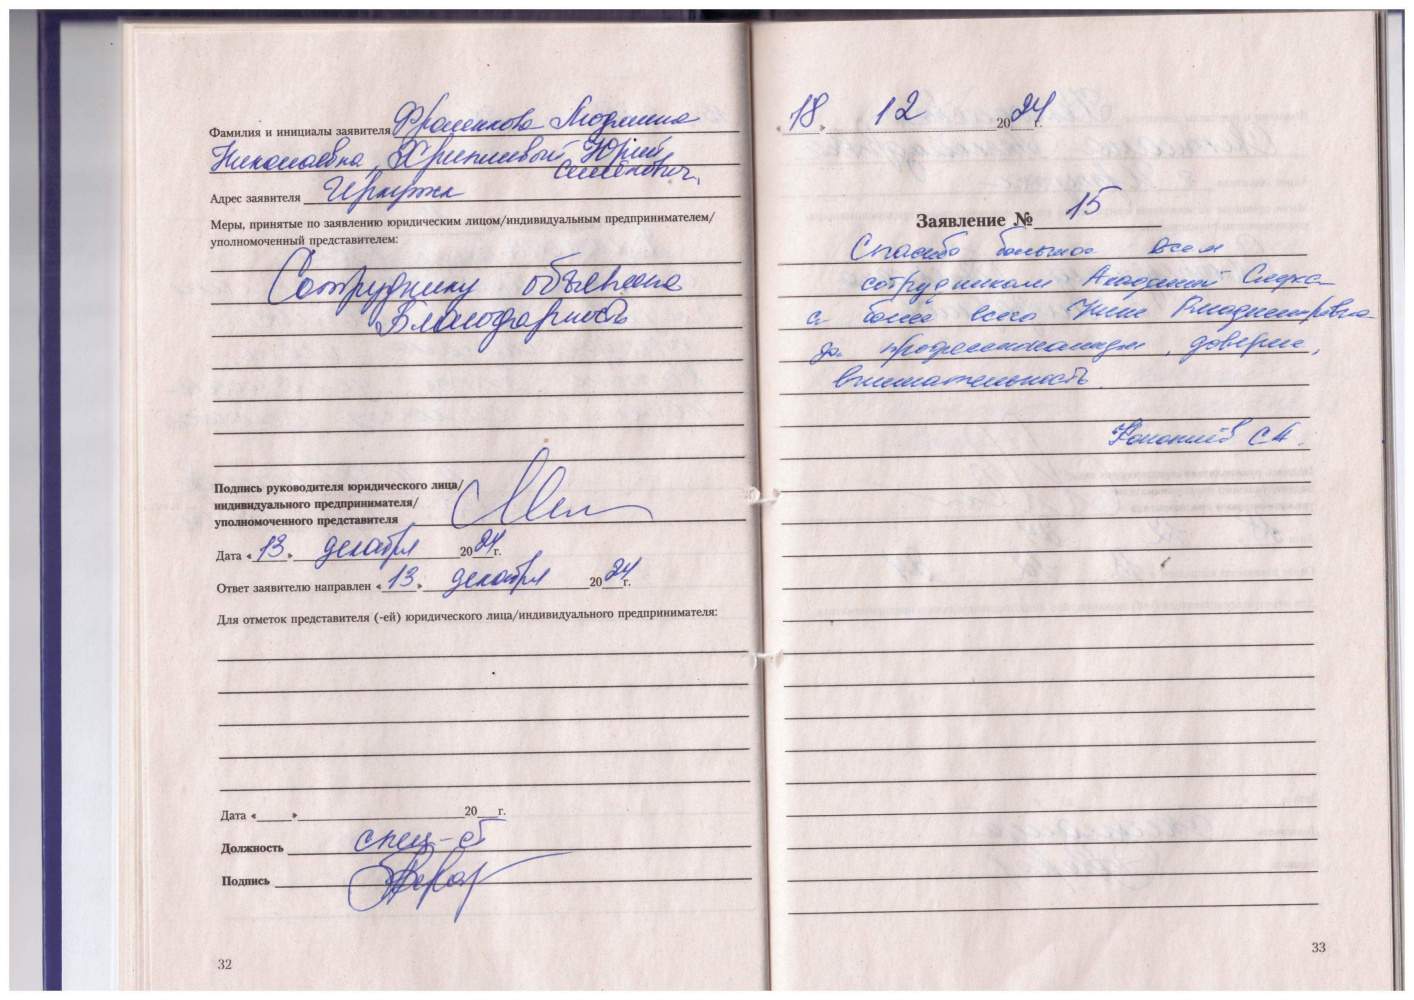 Фамилия и инициалы заявителя Фроленкова Людмила
Николаевна, Хрипливый Юрий
Семенович,
Адрес заявителя
Меры, принятые по заявлению юридическим лицом/индивидуальным предпринимателем/
уполномоченный представителем:
Сотруднику объявлена
Благодарность
Подпись руководителя юридического лица/
индивидуального предпринимателя/
уполномоченного представителя
Дата «13» декабря 2024г.
Ответ заявителю направлен «13» декабря 2024г.
Для отметок представителя (-ей) юридического лица/индивидуального предпринимателя:
Дата «___» ___ 20__г.
Должность спец-т
Подпись
32
«18» 12 2024г.
Заявление № 15
Спасибо большое всем
сотрудникам Академии Слуха
а более всего Владимировна
за профессионализм, доверие,
внимательность.
С.А.
33